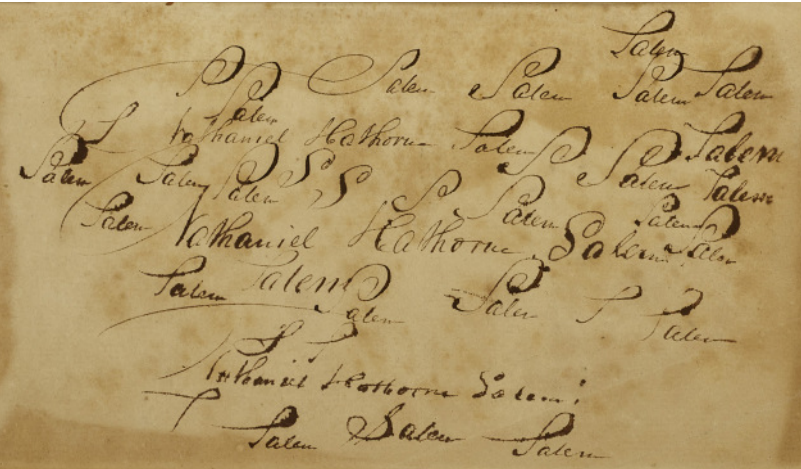 Salem
S Salem Salem Salem Salem
Salem
S Nathaniel Hathorne Salem S S Salem
Salem Salem Salem S S S Salem Salem
Salem Salem Salem
Nathaniel Hathorne Salem Salem
Salem Salem Salem Salem S Salem
S S
Nathaniel Hathorne Salem
S Salem Salem Salem